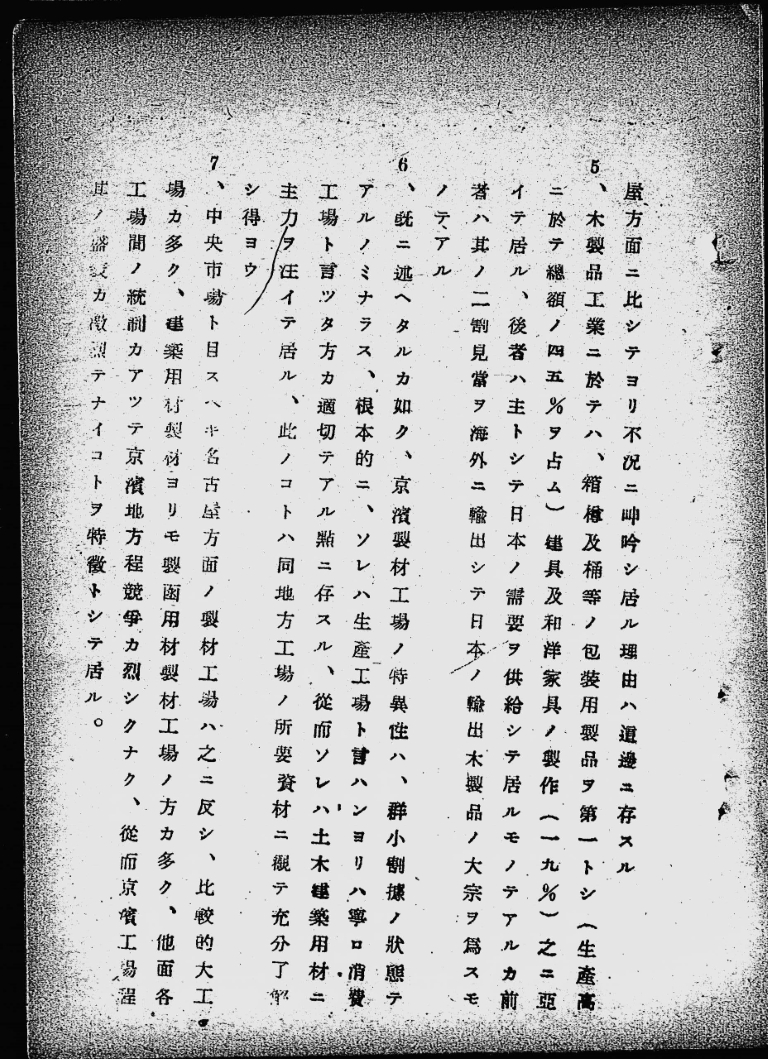 屋方面ニ比シテヨリ不況ニ呻吟シ居ル理由ハ這邊ニ存スル
5、木製品工業ニ於テハ、箱樽及桶等ノ包裝用製品ヲ第一トシ（生產高
ニ於テ總額ノ四五％ヲ占ム）建具及和洋家具ノ製作（一九％）之ニ亞
イテ居ル、後者ハ主トシテ日本ノ需要ヲ供給シテ居ルモノテアルカ前
者ハ其ノ二割見當ヲ海外ニ輸出シテ日本ノ輸出木製品ノ大宗ヲ爲スモ
ノテアル
6、既ニ述ヘタルカ如ク、京濱製材工場ノ特異性ハ、群小割據ノ狀態テ
アルノミナラス、根本的ニ、ソレハ生產工場ト言ハンヨリハ寧ロ消費
工場ト言ツタ方カ適切テアル點ニ存スル、從而ソレハ土木建築用材ニ
主力ヲ注イテ居ル、此ノコトハ同地方工場ノ所要資材ニ觀テ充分了解
シ得ヨウ
7、中央市場ト目スヘキ名古屋方面ノ製材工場ハ之ニ反シ、比較的大工
場カ多ク、建築用材製材ヨリモ製函用材製材工場ノ方カ多ク、他面各
工場間ノ統制カアツテ京濱地方程競爭カ烈シクナク、從而京濱工場程
其ノ盛衰カ激烈テナイコトヲ特徵トシテ居ル。